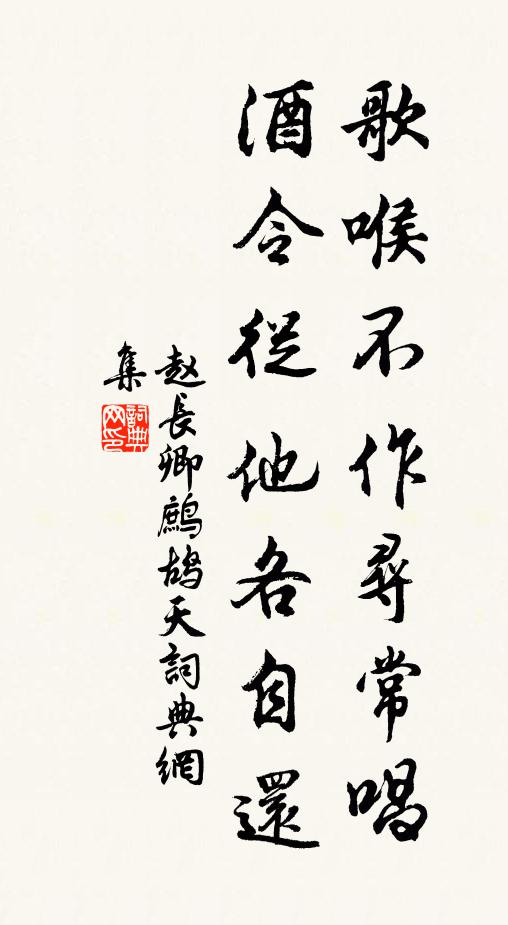 歌喉不作尋常唱
酒令從他各自還
赵長卿鷓鴣天詞典網
集
詞典
网印